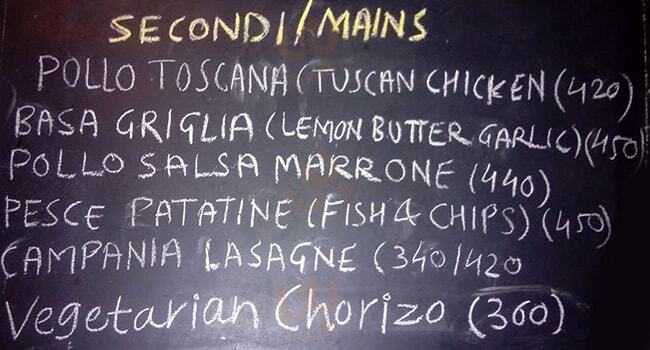 SECONDI/MAINS
POLLO TOSCANA (TUSCAN CHICKEN (420)
BASA GRIGLIA (LEMON BUTTER GARLIC) (450)
POLLO SALSA MARRONE (440)
PESCE PATATINE (FISH & CHIPS) (450)
CAMPANIA LASAGNE (340/420
Vegetarian Chorizo (360)